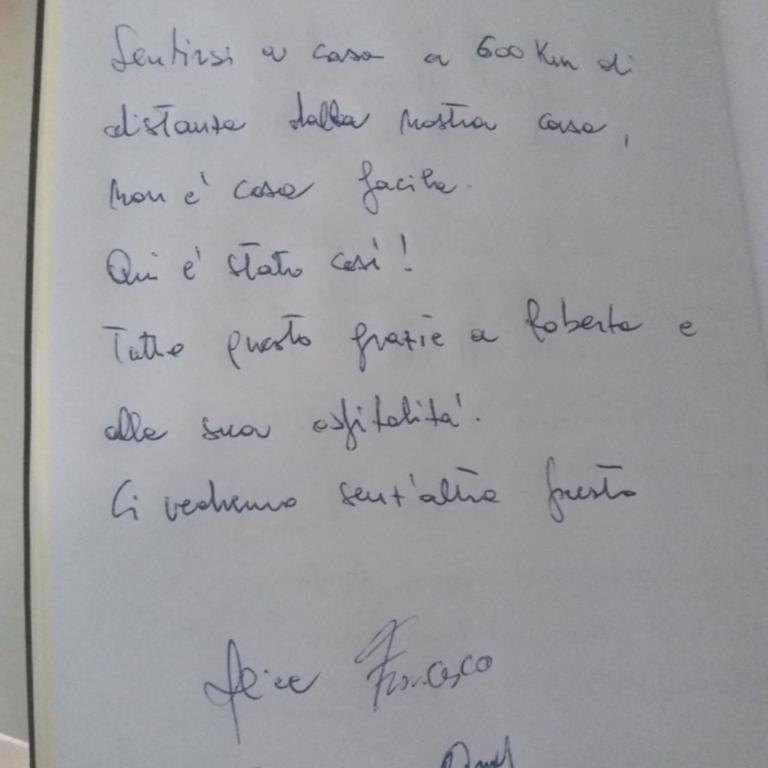 Sentirsi a casa a 600 Km di
distanza dalla nostra casa,
non è cosa facile.
Qui è stato così!
Tutto questo grazie a Roberta e
alla sua ospitalità.
Ci vedremo senz'altro presto
Alice Francesco